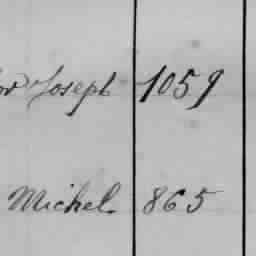 Joseph 1059
Michel 865